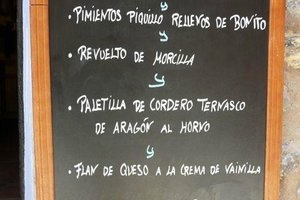 y
• PIMIENTOS PIQUILLO RELLENOS DE BONITO
y
• REVUELTO DE MORCILLA
y
• PALETILLA DE CORDERO TERNASCO
DE ARAGÓN AL HORNO
y
• FLAN DE QUESO A LA CREMA DE VAINILLA